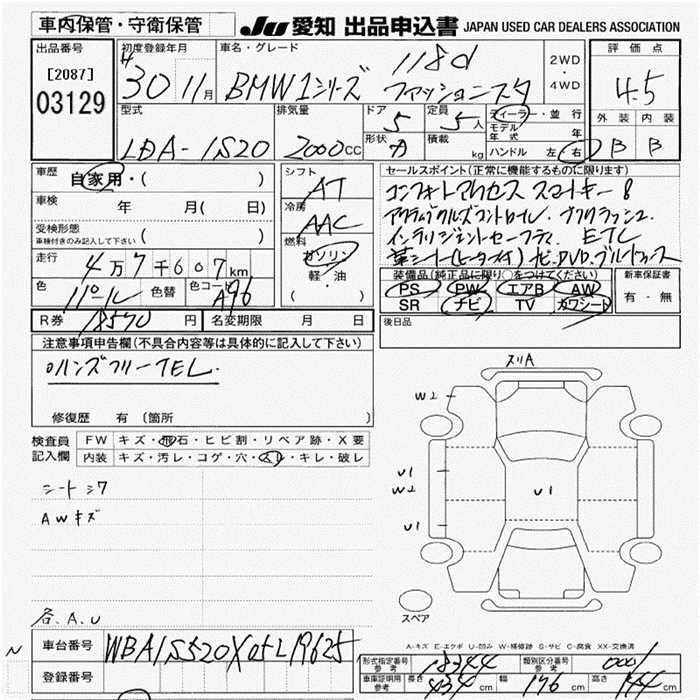 車内保管・守衛保管
JU 愛知 出品申込書 JAPAN USED CAR DEALERS ASSOCIATION
出品番号 初度登録年月 車名・グレード 2WD・4WD 評価点
[2087] H30 11月 BMW 1シリーズ 118d ファッショニスタ 4.5
03129
型式 排気量 ドア 定員 ディーラー・並行 外装 内装
LDA-1S20 2000cc 5 5人 モデル年式 年 B B
形状 積載 kg ハンドル 左・右
車歴 自家用・( ) シフト AT セールスポイント(正常に機能するものに限ります)
車検 年 月( 日) 冷房 AAC コンフォートアクセス スマートキー8
受検形態 アクティブクルーズコントロール
車検付きのみ記入して下さい ( ) 燃料 ガソリン インテリジェントセーフティ ETC
走行 4万7千607km 軽・油 革シート(ヒーター付) ナビ DVD ブルートゥース
( ) 装備品(純正品に限り○をつけてください) 新車保証書
色 パール 色替 色コード A96 PS PW エアB AW 有・無
SR ナビ TV カワシート
R券 18570円 名変期限 月 日 後日品
注意事項申告欄(不具合内容等は具体的に記入して下さい)
ハンズフリーTEL
修復歴 有 (箇所 )
検査員記入欄 FW キズ・飛石・ヒビ割・リペア跡・X要
内装 キズ・汚レ・コゲ・穴・スレ・キレ・破レ
シートシワ
AWキズ
各、A、U
ヌリA
W2
U1
W2
U1
U1
スペア
A-キズ E-エクボ U-凹み W-補修跡 S-サビ C-腐食 XX-交換済
N
車台番号 WBA1S520X05L19625
登録番号
形式指定番号 参考 18344 類別区分番号 参考 0001
車庫証明用 参考 長さ 434cm 幅 176cm 高さ 144cm